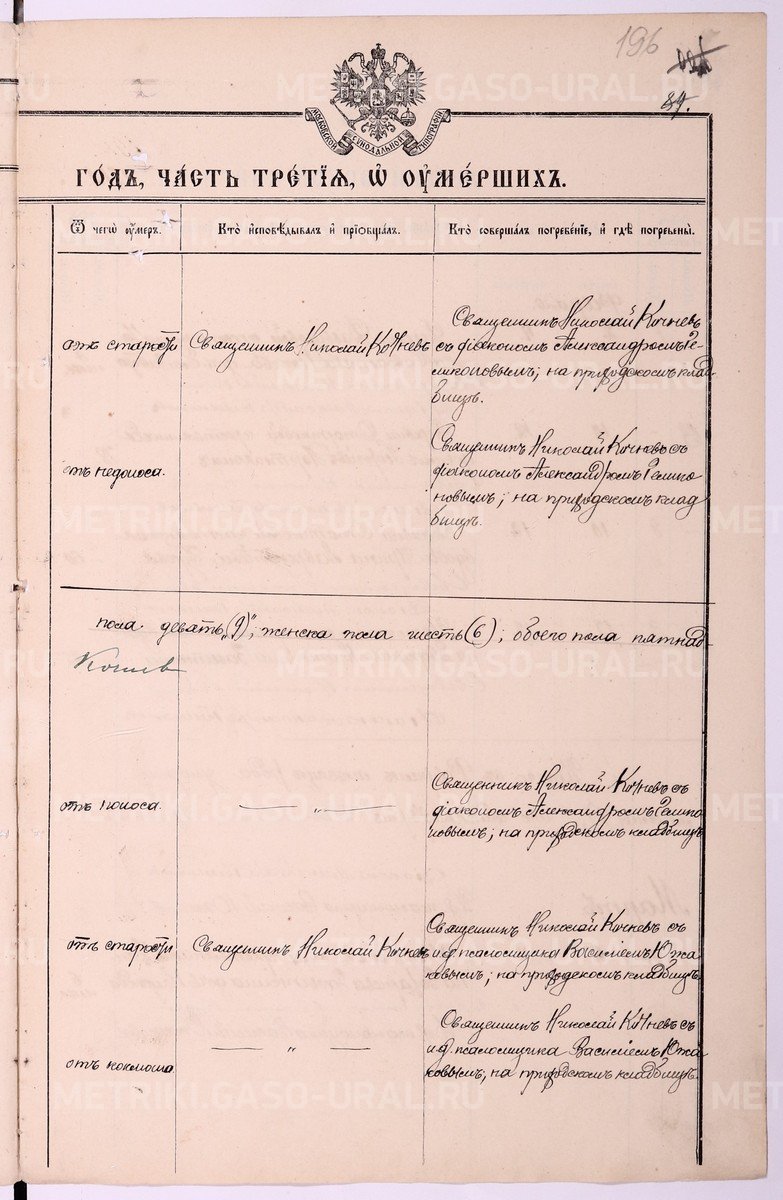 196
84.
МОСКОВСКОЙ СѴНОДАЛЬНОЙ ТИПОГРАФІИ
ГОДЪ, ЧАСТЬ ТРЕТІЯ, Ѡ ОУМЕРШИХЪ.
Ѿ чегѡ оумеръ.
Кто исповѣдывалъ и пріобщалъ.
Кто совершалъ погребеніе, и гдѣ погребены.
отъ старости
Священникъ Николай Кочневъ
Священникъ Николай Кочневъ
съ діакономъ Александромъ Гели
коновымъ; на приходскомъ клад-
бищѣ.
отъ недоноса.
Священник Николай Кочневъ съ
діакономъ Александромъ Гелико
новымъ; на приходскомъ клад
бищѣ.
пола девять „(9)", женска пола шесть (6), обоего пола пятнад-
Кочнев
отъ поноса.
— „ —
Священникъ Николай Кочневъ съ
діакономъ Александромъ Гелико
новымъ; на приходскомъ кладбищѣ
отъ старости
Священникъ Николай Кочневъ
Священникъ Николай Кочневъ съ
и.д. псаломщика Василіемъ Южа
ковымъ; на приходскомъ кладбищѣ.
отъ коклюша
— „ —
Священникъ Николай Кочневъ съ
и.д. псаломщика Василіемъ Южа
ковымъ; на приходскомъ кладбищѣ.
METRIKI.GASO-URAL.RU